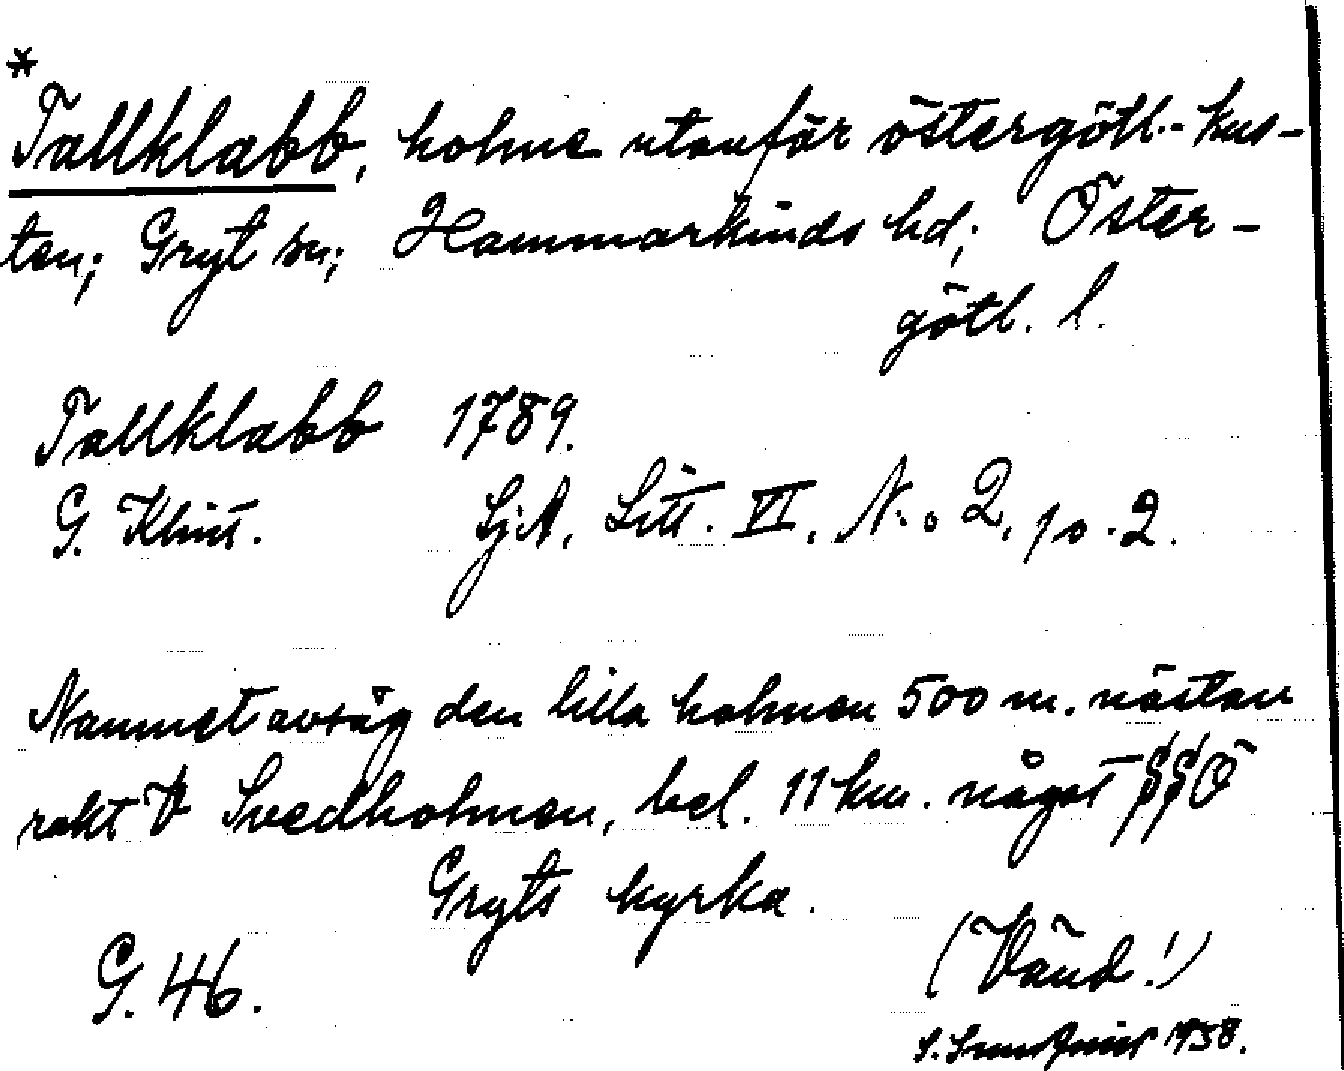 *
Tallklabb, holme utanför östergötl.-kus-
ten; Gryt sn; Hammarkinds hd; Öster-
götl. l.
Tallklabb 1789.
G. Klint. SjA, Litt. VI, N:o 2, p. 2.
Namnet avsåg den lilla holmen 500 m. nästan
rakt V Svedholmen, bel. 11 km. något SSO
Gryts kyrka.
G. 46.
(Vänd!)
S. 1938.